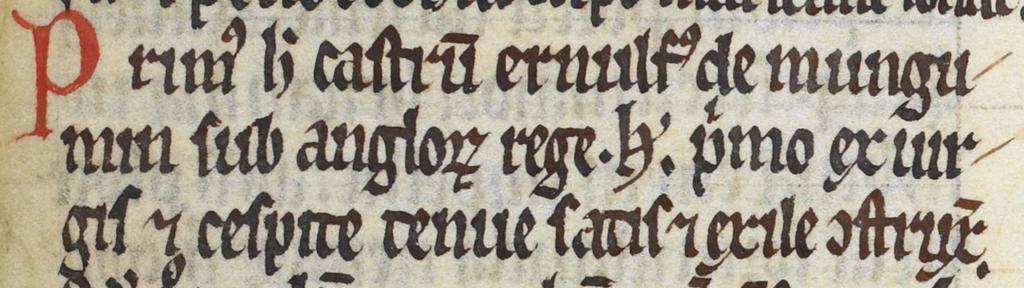 Primꝰ h̄ castrū ernulfꝰ de mungu
min sub angloꝝ rege .h̓. pͥmo ex uir
gis ⁊ cespite tenue satis ⁊ exile ↄstrux̄.